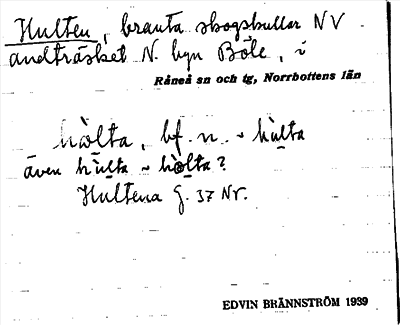 Hulten, branta skogskullar NV
andträsket N. byn Böle, i
Råneå sn och tg, Norrbottens län
hòlta, bf. n. ~ hùlta
även hùlta ~ hòlta?
Hultena G. 37 Nr.
EDVIN BRÄNNSTRÖM 1939